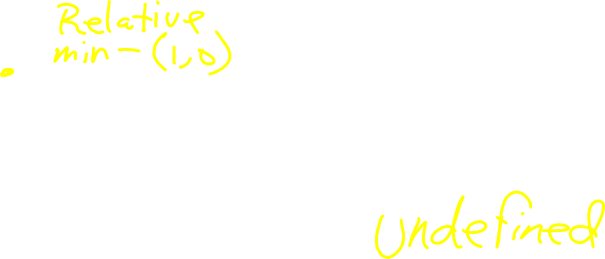 Relative
min - (1,0)
undefined